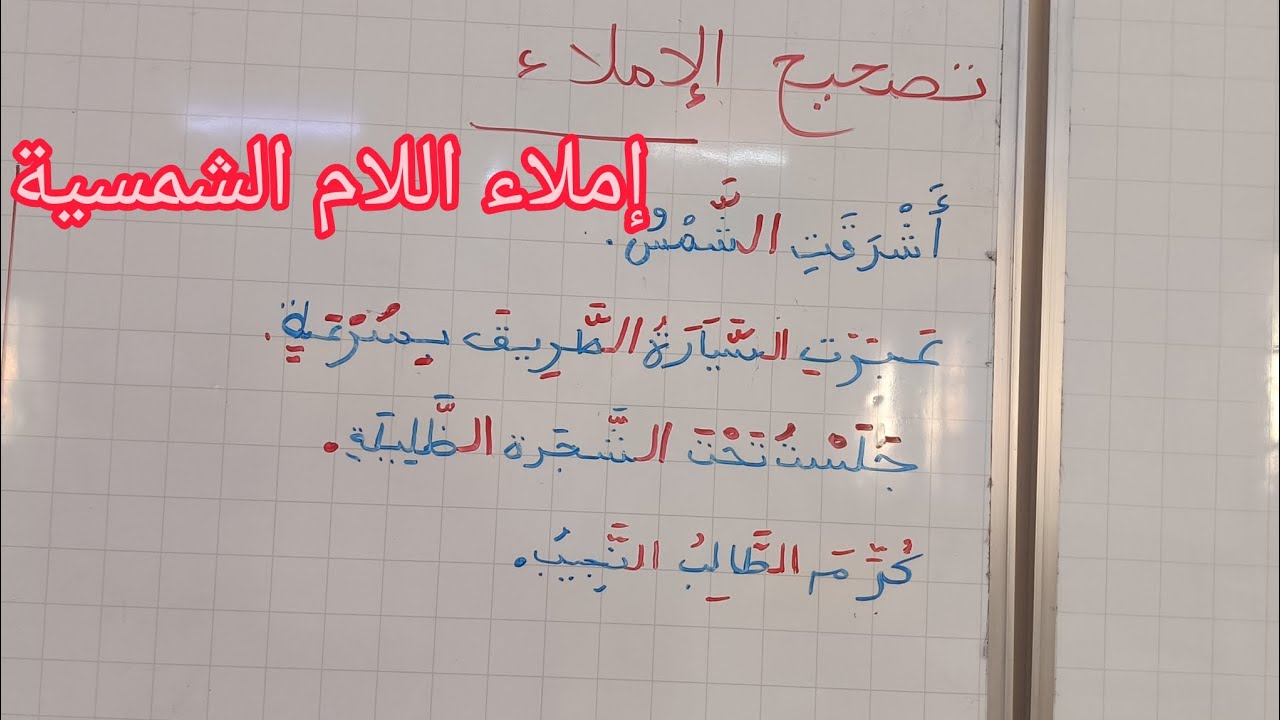 تصحيح الإملاء
إملاء اللام الشمسية
أَشْرَقَتِ الشَّمْسُ.
عَبَرَتِ السَّيَارَةُ الطَّرِيقَ بِسُرْعَةٍ.
جَلَسْتُ تَحْتَ الشَّجَرة الظَّلِيلَةِ.
كُرِّمَ الطَّالِبُ النَّجِيبُ.